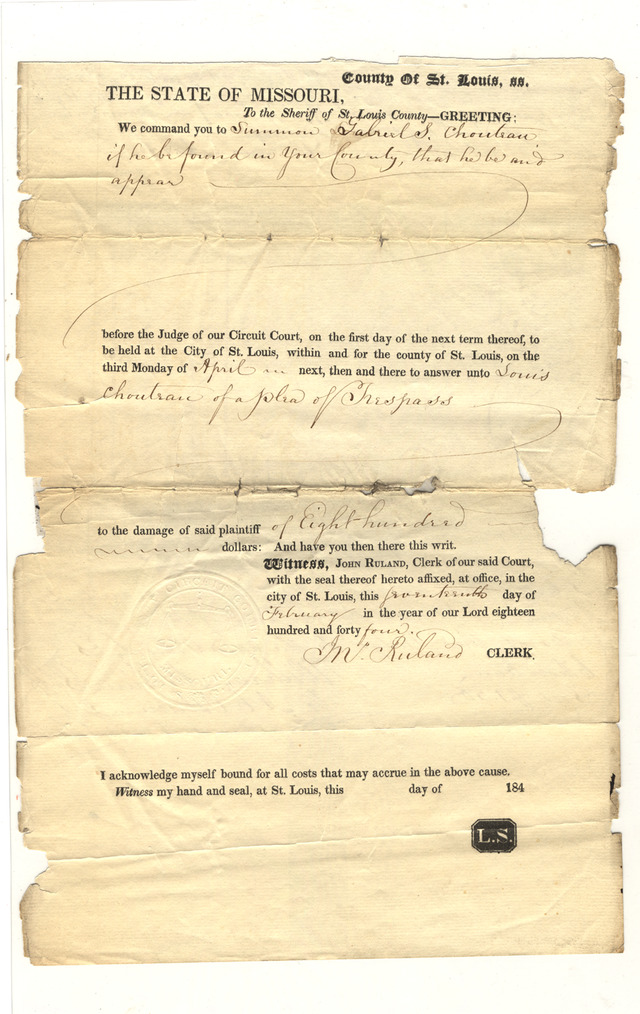 County Of St. Louis, ss.
THE STATE OF MISSOURI,
To the Sheriff of St. Louis County—GREETING:
We command you to Summon Gabriel S. Chouteau
if he be found in Your County, that he be and
appear
before the Judge of our Circuit Court, on the first day of the next term thereof, to
be held at the City of St. Louis, within and for the county of St. Louis, on the
third Monday of April next, then and there to answer unto Louis
Chouteau of a plea of Trespass
to the damage of said plaintiff of Eight hundred
dollars: And have you then there this writ.
Witness, JOHN RULAND, Clerk of our said Court,
with the seal thereof hereto affixed, at office, in the
city of St. Louis, this seventeenth day of
February in the year of our Lord eighteen
hundred and forty four.
Jno. Ruland CLERK.
I acknowledge myself bound for all costs that may accrue in the above cause.
Witness my hand and seal, at St. Louis, this day of 184
L.S.